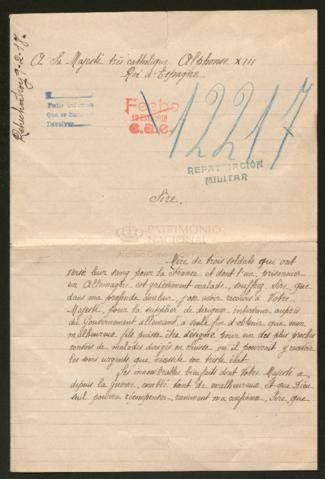 A Sa Majesté très catholique Alphonse XIII
Roi d'Espagne
Fecha
e.a.e.
12217
REPATRIACIÓN
MILITAR
Sire,
PATRIMONIO
NACIONAL
Mère de trois soldats qui ont
versé leur sang pour la France et dont l'un, prisonnier
en Allemagne est grièvement malade, souffrez, Sire, que
dans ma profonde douleur, j'ose avoir recours à Votre
Majesté, pour la supplier de daigner intervenir auprès
du Gouvernement allemand, à seule fin d'obtenir que mon
malheureux fils puisse être désigné pour un des plus proches
convois de malades dirigés en Suisse, où il pourrait y recevoir
les soins urgents que nécessite son triste état.
Les innombrables bienfaits dont Votre Majesté a
depuis la guerre, comblé tant de malheureux et que Dieu
seul pourra récompenser, raniment ma confiance, Sire, que